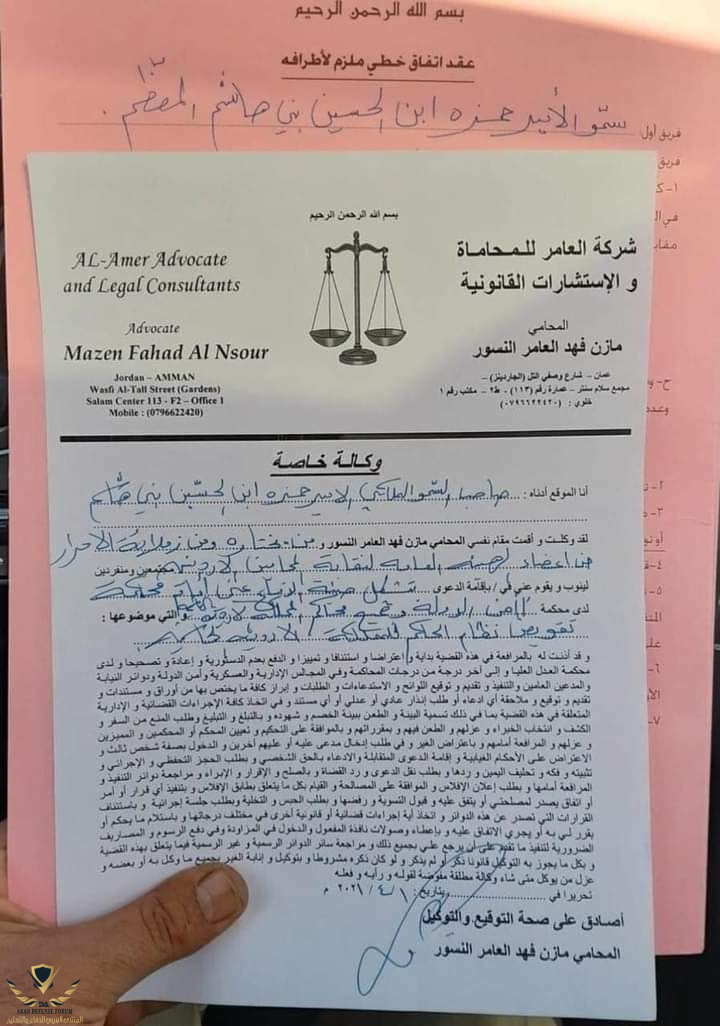 بسم الله الرحمن الرحيم
عقد اتفاق خطي ملزم لأطرافه
فريق أول
سمّو الأمير حمزه ابن الحسين بني هاشم المعظّم.
فريق
بسم الله الرحمن الرحيم
AL-Amer Advocate
and Legal Consultants
Advocate
Mazen Fahad Al Nsour
Jordan – AMMAN
Wasfi Al-Tall Street (Gardens)
Salam Center 113 - F2 – Office 1
Mobile : (0796622420)
شركة العامر للمحاماة
و الإستشارات القانونية
المحامي
مازن فهد العامر النسور
عمان – شارع وصفي التل (الجاردينز) –
مجمع سلام سنتر – عمارة رقم (١١٣) - ط٢ – مكتب رقم ١
خلوي : (٠٧٩٦٦٢٢٤٢٠)
وكالة خاصة
أنا الموقع أدناه : صاحب السّمو الملكي الامير حمزه ابن الحسّين بني هاشم
لقد وكلت و أقمت مقام نفسي المحامي مازن فهد العامر النسور و من يختاره ومن زملائه الاحرار
من اعضاء الهيئة العامه لنقابة محامين الاردنيين مجتمعين ومنفردين
لينوب و يقوم عني في / بإقامة الدعوى
لدى محكمة امن الدولة والتي موضوعها :
تقويض نظام الحكم للمملكة الاردنية
و قد أذنت له بالمرافعة في هذه القضية بداية و اعتراضا و استئنافا و تمييزا و الدفع بعدم الدستورية و إعادة و تصحيحا و لدى
محكمة العدل العليا و إلى آخر درجة من درجات المحاكمة وفي المجالس الإدارية والعسكرية وأمن الدولة ودوائر النيابة
و المدعين العامين والتنفيذ و تقديم و توقيع اللوائح و الاستدعاءات و الطلبات و إبراز كافة ما يختص بها من أوراق و مستندات و
تقديم و توقيع و ملاحقة أي ادعاء أو طلب إنذار عادي أو عدلي أو أي مستند و في اتخاذ كافة الإجراءات القضائية و الإدارية
المتعلقة في هذه القضية بما في ذلك تسمية البينة و الطعن ببينة الخصم و شهوده و بالتبلغ و التبليغ وطلب المنع من السفر و
الكشف و انتخاب الخبراء و عزلهم و الطعن فيهم و بمقرراتهم و بالموافقة على التحكيم و تعيين المحكم أو المحكمين و المميزين
و عزلهم و المرافعة أمامهم و باعتراض الغير و في طلب إدخال مدعى عليه أو عليهم آخرين و الدخول بصفة شخص ثالث و
الاعتراض على الأحكام الغيابية و إقامة الدعوى المتقابلة والادعاء بالحق الشخصي و بطلب الحجز التحفظي و الإجرائي و
تثبيته و فكه و تحليف اليمين و ردها و بطلب نقل الدعوى و رد القضاة و بالصلح و الإقرار و الإبراء و مراجعة دوائر التنفيذ و
المرافعة أمامها و بطلب إعلان الإفلاس و الموافقة على المصالحة و القيام بكل ما يتعلق بطابق الإفلاس و بتنفيذ أي قرار أو أمر
أو اتفاق يصدر لمصلحتي أو يتفق عليه و قبول التسوية و رفضها و بطلب الحبس و التخلية وبطلب جلسة إجرائية و باستئناف
القرارات التي تصدر عن هذه الدوائر و اتخاذ أية إجراءات قضائية أو قانونية أخرى في مختلف درجاتها و باستلام ما يحكم أو
يقرر لي به أو يجري الاتفاق عليه و بإعطاء وصولات نافذة المفعول والدخول في المزاودة وفي دفع الرسوم و المصاريف
الضرورية لتنفيذ ما تقدم على أن يرجع علي بجميع ذلك و مراجعة سائر الدوائر الرسمية و غير الرسمية فيما يتعلق بهذه القضية
و بكل ما يجوز به التوكيل قانونا ذكر أو لم يذكر و لو كان ذكره مشروطا و بتوكيل و إنابة الغير بجميع ما وكل به أو بعضه و
عزل من يوكل متى شاء وكالة مطلقة مفوضة لقوله و رأيه و فعله
تحريرا في بتاريخ: ١ / ٤ / ٢٠٢١ م
أصادق على صحة التوقيع والتوكيل
المحامي مازن فهد العامر النسور
ARAB DEFENSE FORUM
المنتدى العربي للدفاع والتسليح